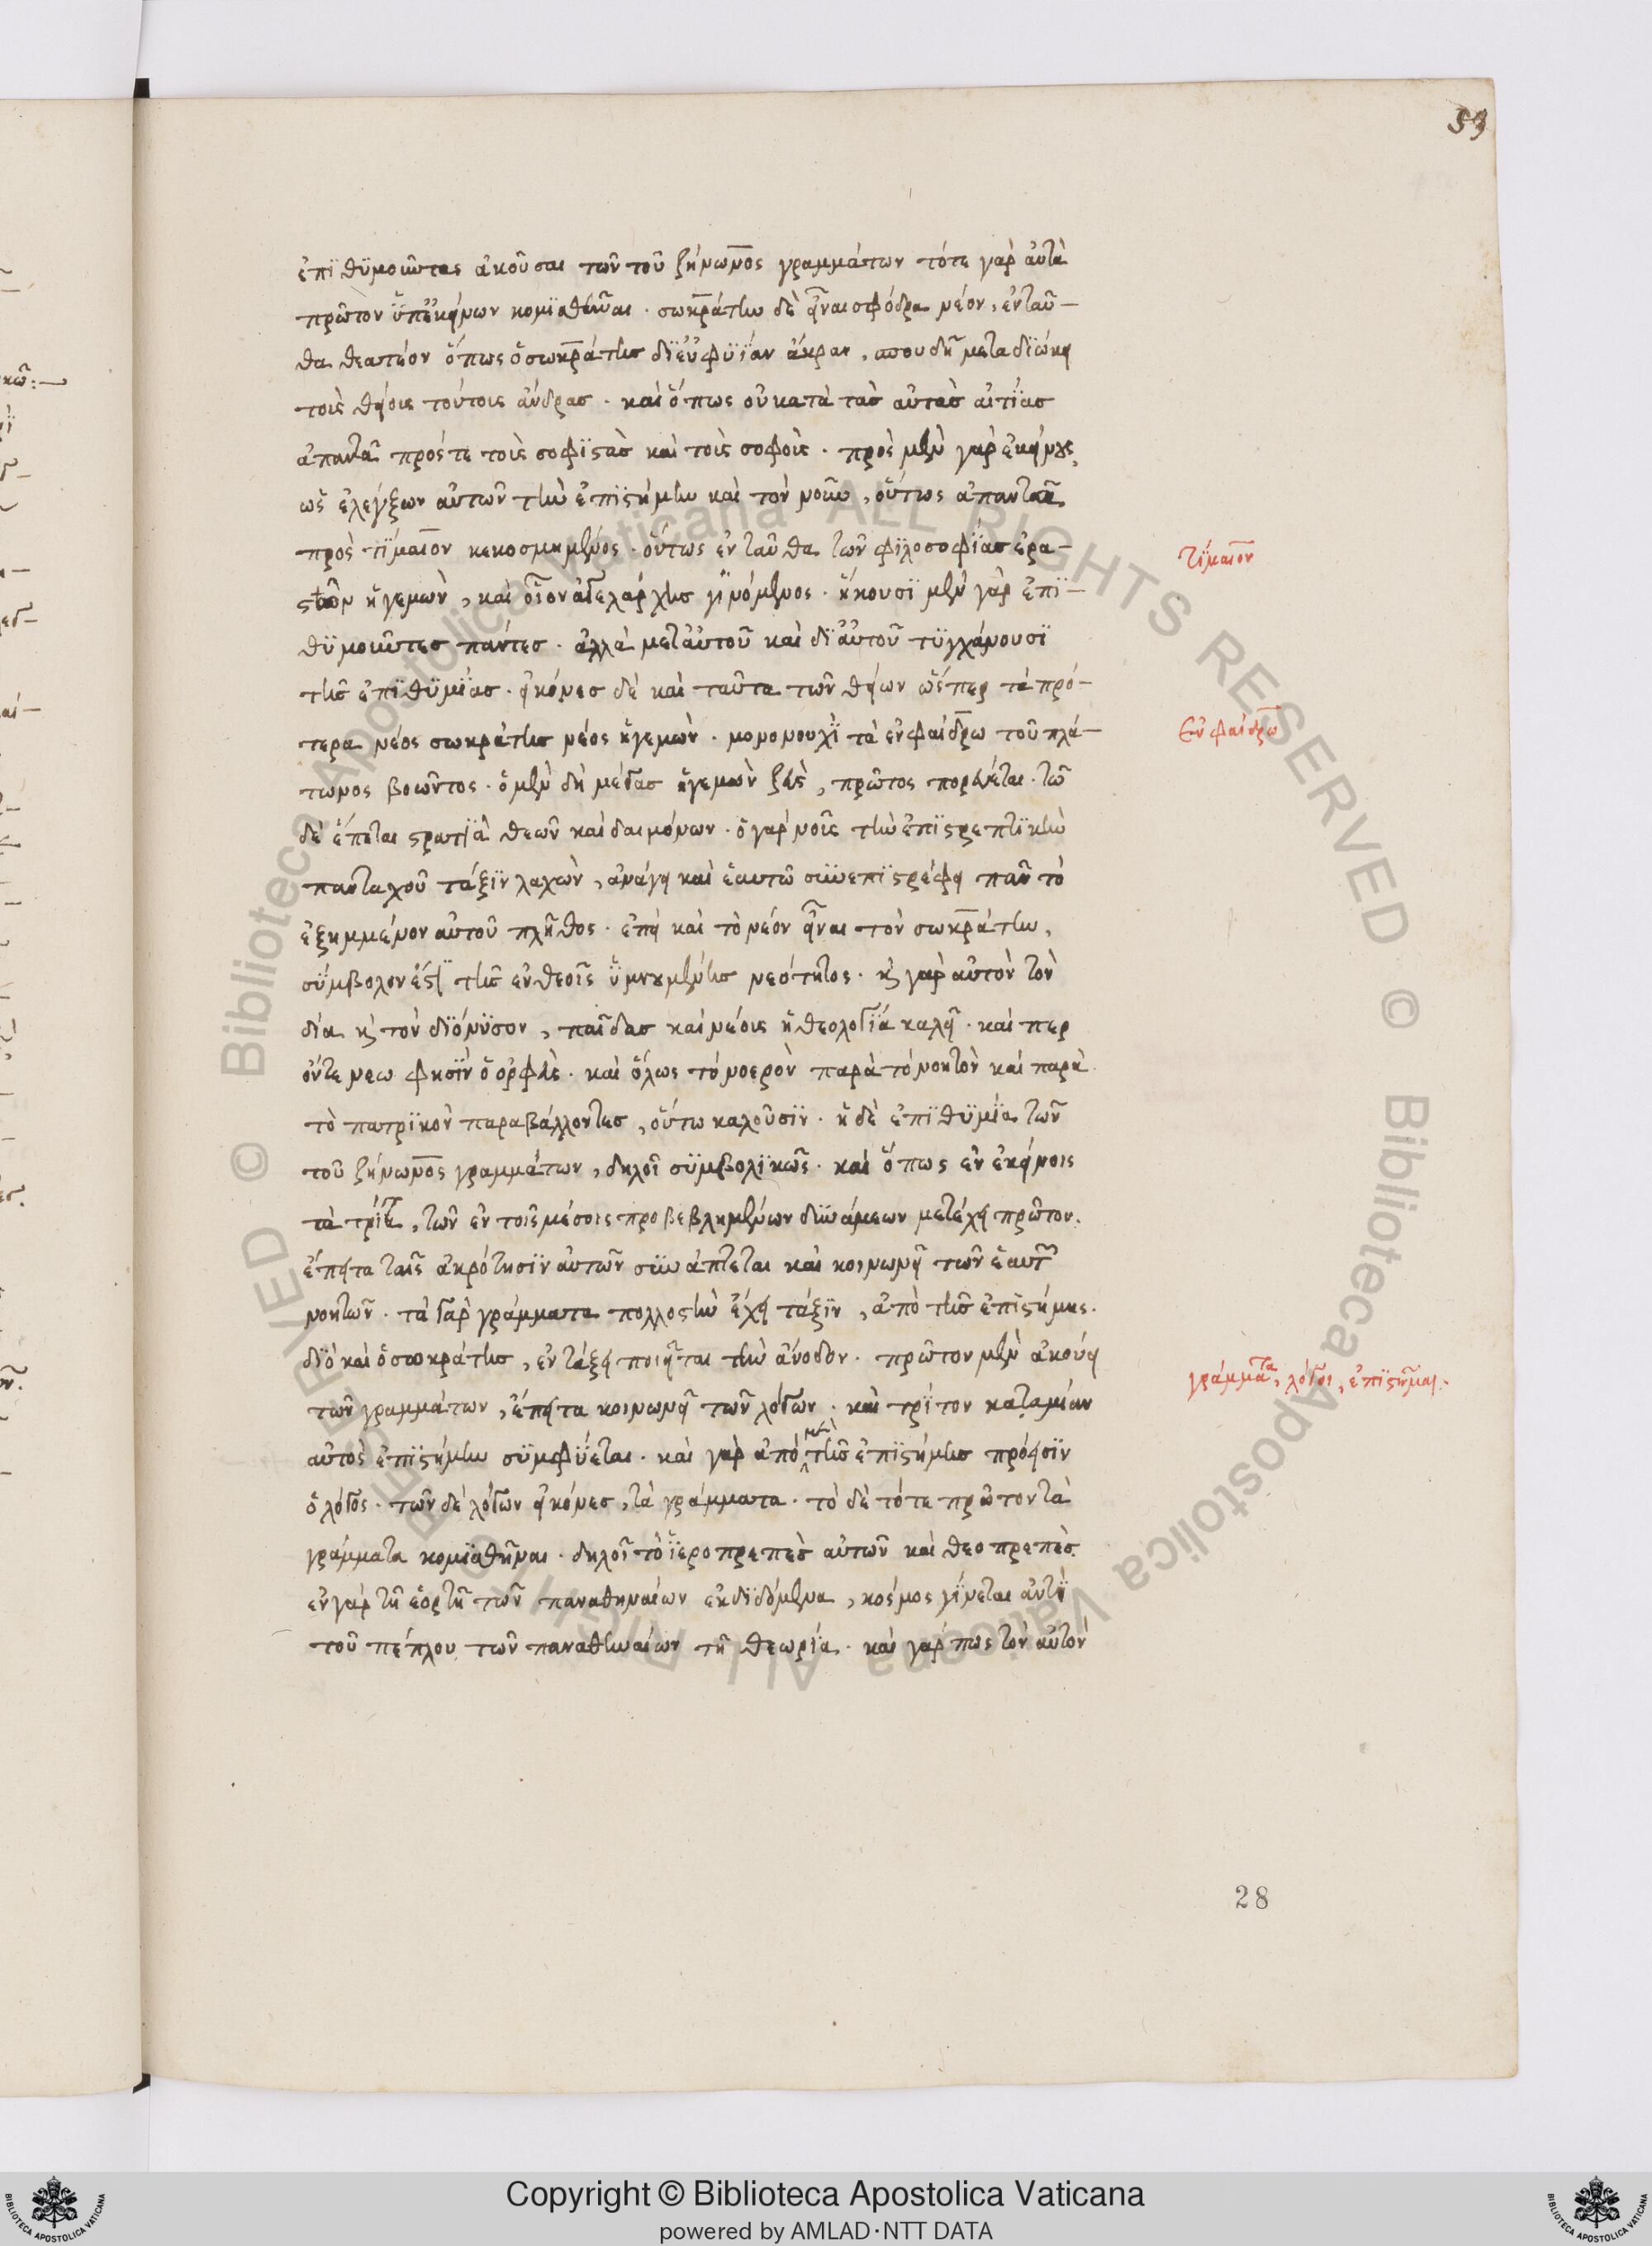 59
ἐπϊθϋμοῦντας ἀκοῦσαι τῶν τοῦ ζήνωνος γραμμάτων τότε γὰρ αὐτὰ
πρῶτον ὑπ' ἐκείνων κομϊσθῆναι · σωκράτην δὲ εἶναι σφόδρα νέον, ἐνταῦ–
θα θεατέον ὅπως ὁ σωκράτης δϊ' εὐφυΐαν ἄκραν, σπουδῆ μεταδϊώκει
τοὺς θείους τούτους ἄνδρας · καὶ ὅπως οὐ κατὰ τὰς αὐτὰς αἰτΐας
ἀπαντᾶ πρός τε τοὺς σοφϊστὰς καὶ τοὺς σοφούς · πρὸς μὲν γὰρ ἐκείνους
ὡς ἐλέγξων αὐτῶν τὴν ἐπϊστήμην καὶ τὸν νοῦν, οὕτως ἀπαντᾶ
πρὸς τΐμαιον κεκοσμημένος · οὕτως ἐνταῦθα τῶν φϊλοσοφΐας ἐρα–
στῶν ἡγεμὼν, καὶ οἷον ἀγελάρχης γϊνόμενος · ἥκουσϊ μὲν γὰρ ἐπϊ–
θϋμοῦντες πάντες · ἀλλὰ μετ' αὐτοῦ καὶ δϊ' αὐτοῦ τϋγχάνουσϊ
τῆς ἐπϊθϋμΐας · εἰκόνες δὲ καὶ ταῦτα τῶν θείων ὥσπερ τὰ πρό–
τερα νέος σωκράτης νέος ἡγεμὼν · μονονουχῒ τὰ ἐν φαίδρω τοῦ πλά–
τωνος βοῶντος · ὁ μὲν δὴ μέγας ἡγεμὼν ζεὺς, πρῶτος πορεύεται · τῶ
δὲ ἕπεται στρατϊὰ θεῶν καὶ δαιμόνων · ὁ γὰρ νοῦς τὴν ἐπϊστρεπτϊκὴν
πανταχοῦ τάξϊν λαχὼν, ἀνάγει καὶ ἑαυτῶ συνεπϊστρέφει πᾶν τὸ
ἐξημμένον αὐτοῦ πλῆθος · ἐπεὶ καὶ τὸ νέον εἶναι τὸν σωκράτην,
σύμβολον ἐστῒ τῆς ἐν θεοῖς ὑμνουμένης νεότητος · καὶ γὰρ αὐτὸν τὸν
δία καὶ τὸν δϊόνϋσον, παῖδας καὶ νέους ἡ θεολογΐα καλεῖ · καί περ
ὄντε νέω φησῒν ὁ ὀρφεὺς · καὶ ὅλως τὸ νοερὸν παρὰ τὸ νοητὸν καὶ παρὰ
τὸ πατρϊκὸν παραβάλλοντες, οὕτω καλοῦσϊν · ἡ δὲ ἐπϊθϋμΐα τῶν
τοῦ ζήνωνος γραμμάτων, δηλοῖ σϋμβολϊκῶς · καὶ ὅπως ἐν ἐκείνοις
τὰ τρίτα, τῶν ἐν τοῖς μέσοις προβεβλημένων δϋνάμεων μετέχει πρῶτον ·
ἔπειτα ταῖς ἀκρότησϊν αὐτῶν σϋνάπτεται καὶ κοινωνεῖ τῶν ἑαυτῶν
νοητῶν · τὰ γὰρ γράμματα πολλοστὴν ἔχει τάξϊν, ἀπὸ τῆς ἐπϊστήμης ·
δϊὸ καὶ ὁ σωκράτης, ἐν τάξει ποιεῖται τὴν ἄνοδον · πρῶτον μὲν ἀκούει
τῶν γραμμάτων, ἔπειτα κοινωνεῖ τῶν λόγων · καὶ τρΐτον κατα μίαν
αὐτοῖς ἐπϊστήμην σϋμφϋεται · καὶ γὰρ ἀπὸ μὲν τῆς ἐπϊστήμης πρόεισϊν
ὁ λόγος · τῶν δὲ λόγων εἰκόνες, τὰ γράμματα · τὸ δὲ τότε πρῶτον τὰ
γράμματα κομϊσθῆναι · δηλοῖ τὸ ἱεροπρεπὲς αὐτῶν καὶ θεοπρεπὲς ·
ἐν γὰρ τῆ ἑορτῆ τῶν παναθηναίων ἐκδϊδόμενα, κόσμος γΐνεται ἀντῒ
τοῦ πέπλου τῶν παναθηναίων τῆ θεωρΐα · καὶ γάρ πως τὸν αὐτὸν
τΐμαιον
Ἐν φαίδρω
γράμματα, λόγοι, ἐπϊστῆμαι ·
28
Copyright © Biblioteca Apostolica Vaticana
powered by AMLAD·NTT DATA